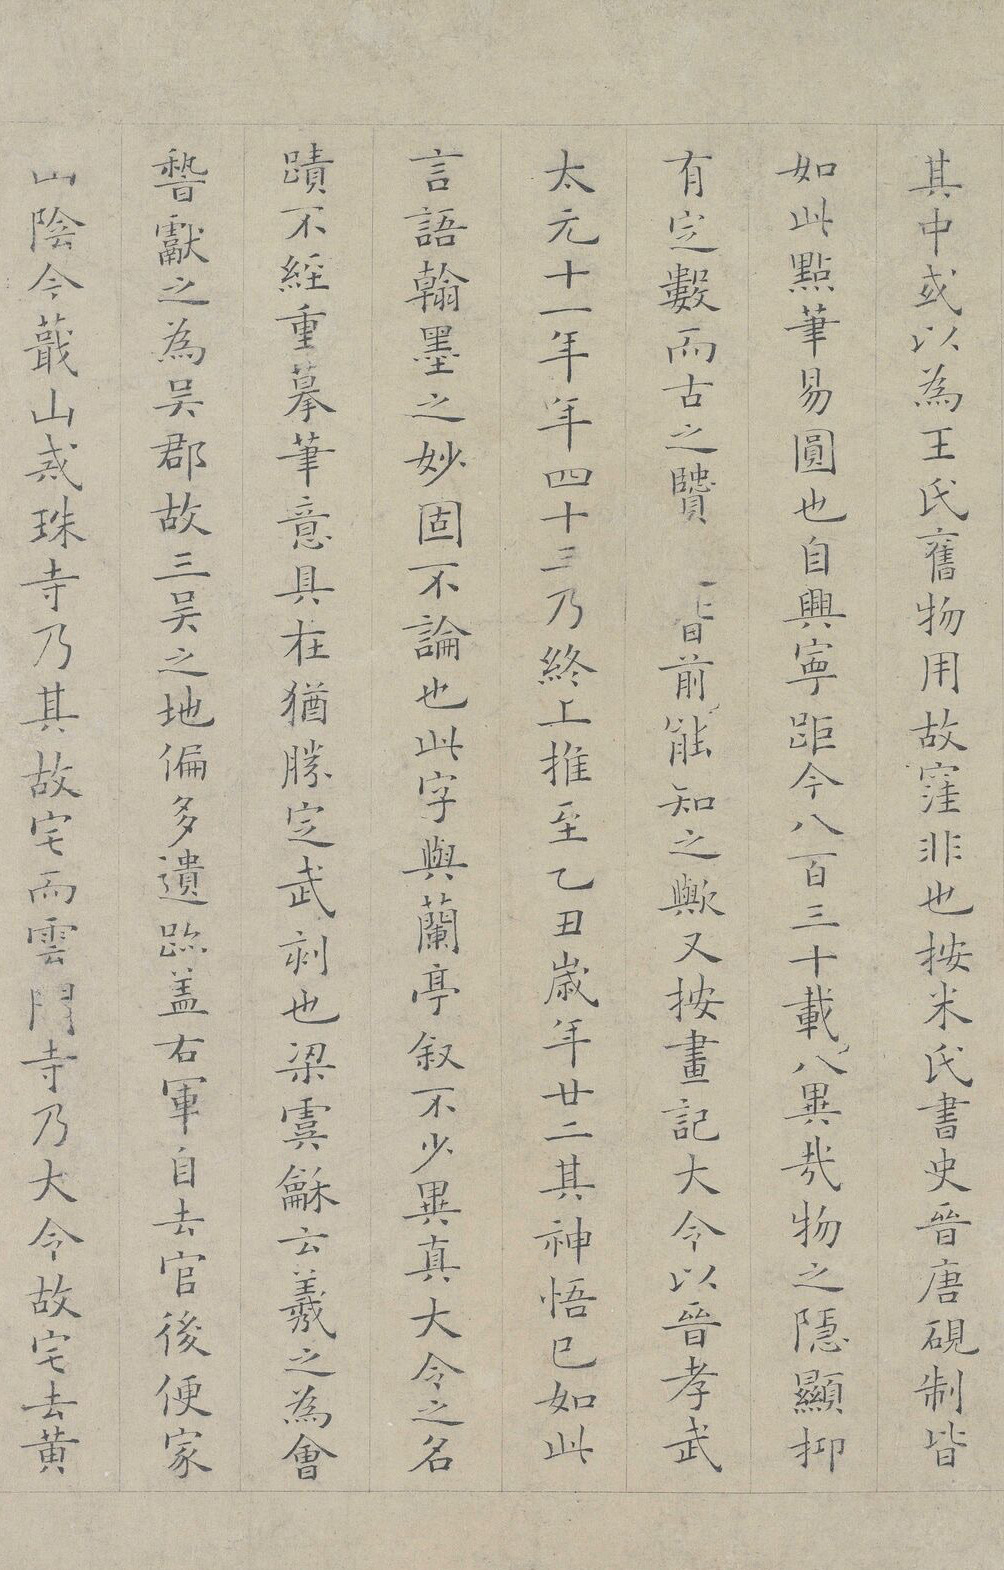 其中或以為王氏舊物用故窪非也按米氏書史晉唐硯制皆
如此點筆易圓也自興寧距今八百三十載八異哉物之隱顯抑
有定數而古之賢前能知之歟又按畫記大令以晉孝武
太元十一年年四十三乃終上推至乙丑歲年廿二其神悟已如此
言語翰墨之妙固不論也此字與蘭亭叙不少異真大令之名
蹟不經重摹筆意具在猶勝定武刻也梁虞龢云羲之為會
稽獻之為吳郡故三吳之地偏多遺跡盖右軍自去官後便家
山陰今蕺山戒珠寺乃其故宅而雲門寺乃大令故宅去黃